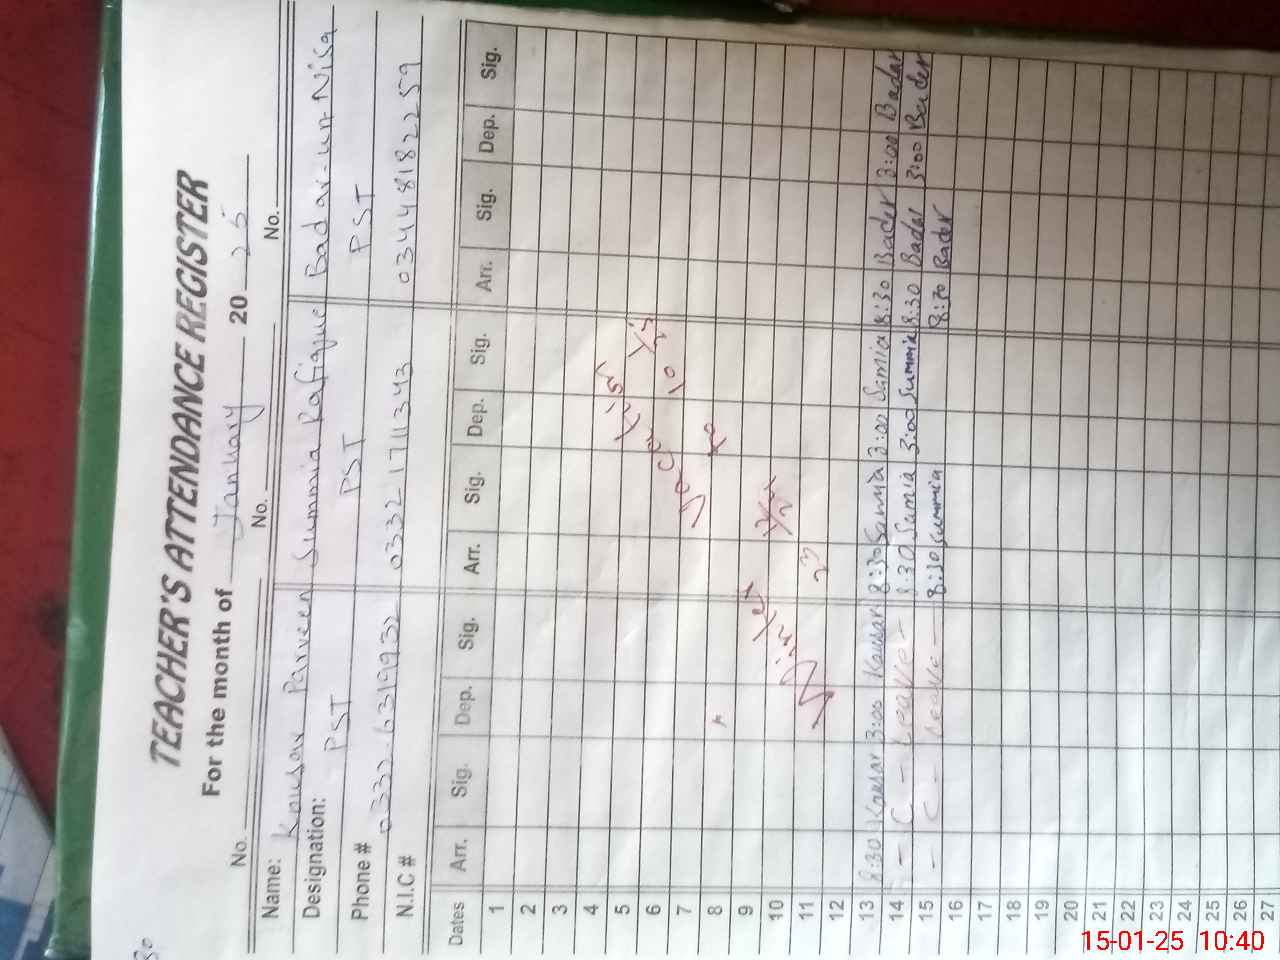 TEACHER'S ATTENDANCE REGISTER
For the month of January 20 25
No. No. No.
Name: Kousar Parveen Summia Rafique Badar-un-Nisa
Designation: PST PST PST
Phone # 0332-6319932 0332 1711343 03448182259
N.I.C #
Dates Arr. Sig. Dep. Sig. Arr. Sig. Dep. Sig. Arr. Sig. Dep. Sig.
1
2
3
4
5
6
7
8
9
10
11
12
13 8:30 Kausar 3:00 Kausar 8:30 Samia 3:00 Samia 8:30 Bader 3:00 Badar
14 - C - Leave - 8:30 Samia 3:00 Summia 8:30 Badar 3:00 Bader
15 - C - Leave - 8:30 Summia 8:30 Bader
16
17
18
19
20
21
22
23
24
25
26
27
15-01-25 10:40